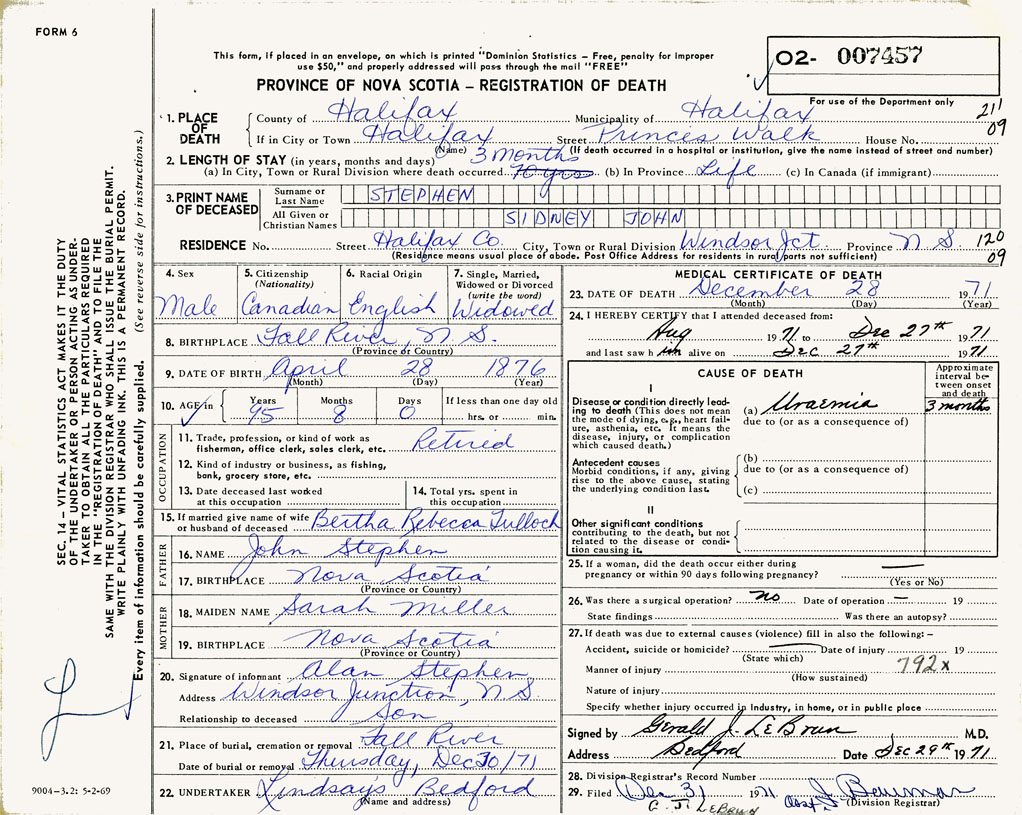 FORM 6
This form, if placed in an envelope, on which is printed "Dominion Statistics – Free, penalty for improper
use $50," and properly addressed will pass through the mail "FREE"
02- 007457
PROVINCE OF NOVA SCOTIA – REGISTRATION OF DEATH
For use of the Department only
1. PLACE OF DEATH
County of Halifax Municipality of Halifax 211
If in City or Town Halifax Street Princes Walk House No. 09
(Name) (If death occurred in a hospital or institution, give the name instead of street and number)
2. LENGTH OF STAY (in years, months and days) 3 months
(a) In City, Town or Rural Division where death occurred 70 yrs (b) In Province Life (c) In Canada (if immigrant)
3. PRINT NAME OF DECEASED
Surname or Last Name STEPHEN
All Given or Christian Names SIDNEY JOHN
RESIDENCE No. Street Halifax Co. City, Town or Rural Division Windsor Jct. Province N.S. 120
(Residence means usual place of abode. Post Office Address for residents in rural parts not sufficient) 09
4. Sex
Male
5. Citizenship (Nationality)
Canadian
6. Racial Origin
English
7. Single, Married, Widowed or Divorced (write the word)
Widowed
8. BIRTHPLACE Fall River, N.S.
(Province or Country)
9. DATE OF BIRTH April 28 1876
(Month) (Day) (Year)
10. AGE in Years Months Days If less than one day old
95 8 0 hrs. or min.
OCCUPATION
11. Trade, profession, or kind of work as
fisherman, office clerk, sales clerk, etc. Retired
12. Kind of industry or business, as fishing,
bank, grocery store, etc.
13. Date deceased last worked
at this occupation
14. Total yrs. spent in
this occupation
15. If married give name of wife
or husband of deceased Bertha Rebecca Tulloch
FATHER
16. NAME John Stephen
17. BIRTHPLACE Nova Scotia
(Province or Country)
MOTHER
18. MAIDEN NAME Sarah Miller
19. BIRTHPLACE Nova Scotia
(Province or Country)
20. Signature of informant Alan Stephen
Address Windsor Junction, N.S.
Relationship to deceased Son
21. Place of burial, cremation or removal Fall River
Date of burial or removal Thursday, Dec 30/71
22. UNDERTAKER Lindsay's Bedford
(Name and address)
MEDICAL CERTIFICATE OF DEATH
23. DATE OF DEATH December 28 1971
(Month) (Day) (Year)
24. I HEREBY CERTIFY that I attended deceased from:
Aug 1971 to Dec 27th 1971
and last saw him alive on Dec 27th 1971
CAUSE OF DEATH
Approximate interval between onset and death
I
Disease or condition directly lead-
ing to death (This does not mean
the mode of dying, e.g., heart fail-
ure, asthenia, etc. It means the
disease, injury, or complication
which caused death.)
(a) Uraemia 3 months
due to (or as a consequence of)
Antecedent causes
Morbid conditions, if any, giving
rise to the above cause, stating
the underlying condition last.
(b)
due to (or as a consequence of)
(c)
II
Other significant conditions
contributing to the death, but not
related to the disease or condi-
tion causing it.
25. If a woman, did the death occur either during
pregnancy or within 90 days following pregnancy? —
(Yes or No)
26. Was there a surgical operation? no Date of operation – 19
State findings Was there an autopsy?
27. If death was due to external causes (violence) fill in also the following:–
Accident, suicide or homicide? — Date of injury 19
(State which)
Manner of injury 792x
(How sustained)
Nature of injury
Specify whether injury occurred in industry, in home, or in public place
Signed by Gerald J. LeBrun M.D.
Address Bedford Date Dec 29th 1971
28. Division Registrar's Record Number
29. Filed Dec 31 1971
(Division Registrar)
G. J. LeBrun
SEC. 14 – VITAL STATISTICS ACT MAKES IT THE DUTY
OF THE UNDERTAKER OR PERSON ACTING AS UNDER-
TAKER TO OBTAIN ALL THE PARTICULARS REQUIRED
IN THE "REGISTRATION OF DEATH" AND TO FILE THE
SAME WITH THE DIVISION REGISTRAR WHO SHALL ISSUE THE BURIAL PERMIT.
WRITE PLAINLY WITH UNFADING INK. THIS IS A PERMANENT RECORD.
Every item of information should be carefully supplied. (See reverse side for instructions.)
9004-3.2: 5-2-69